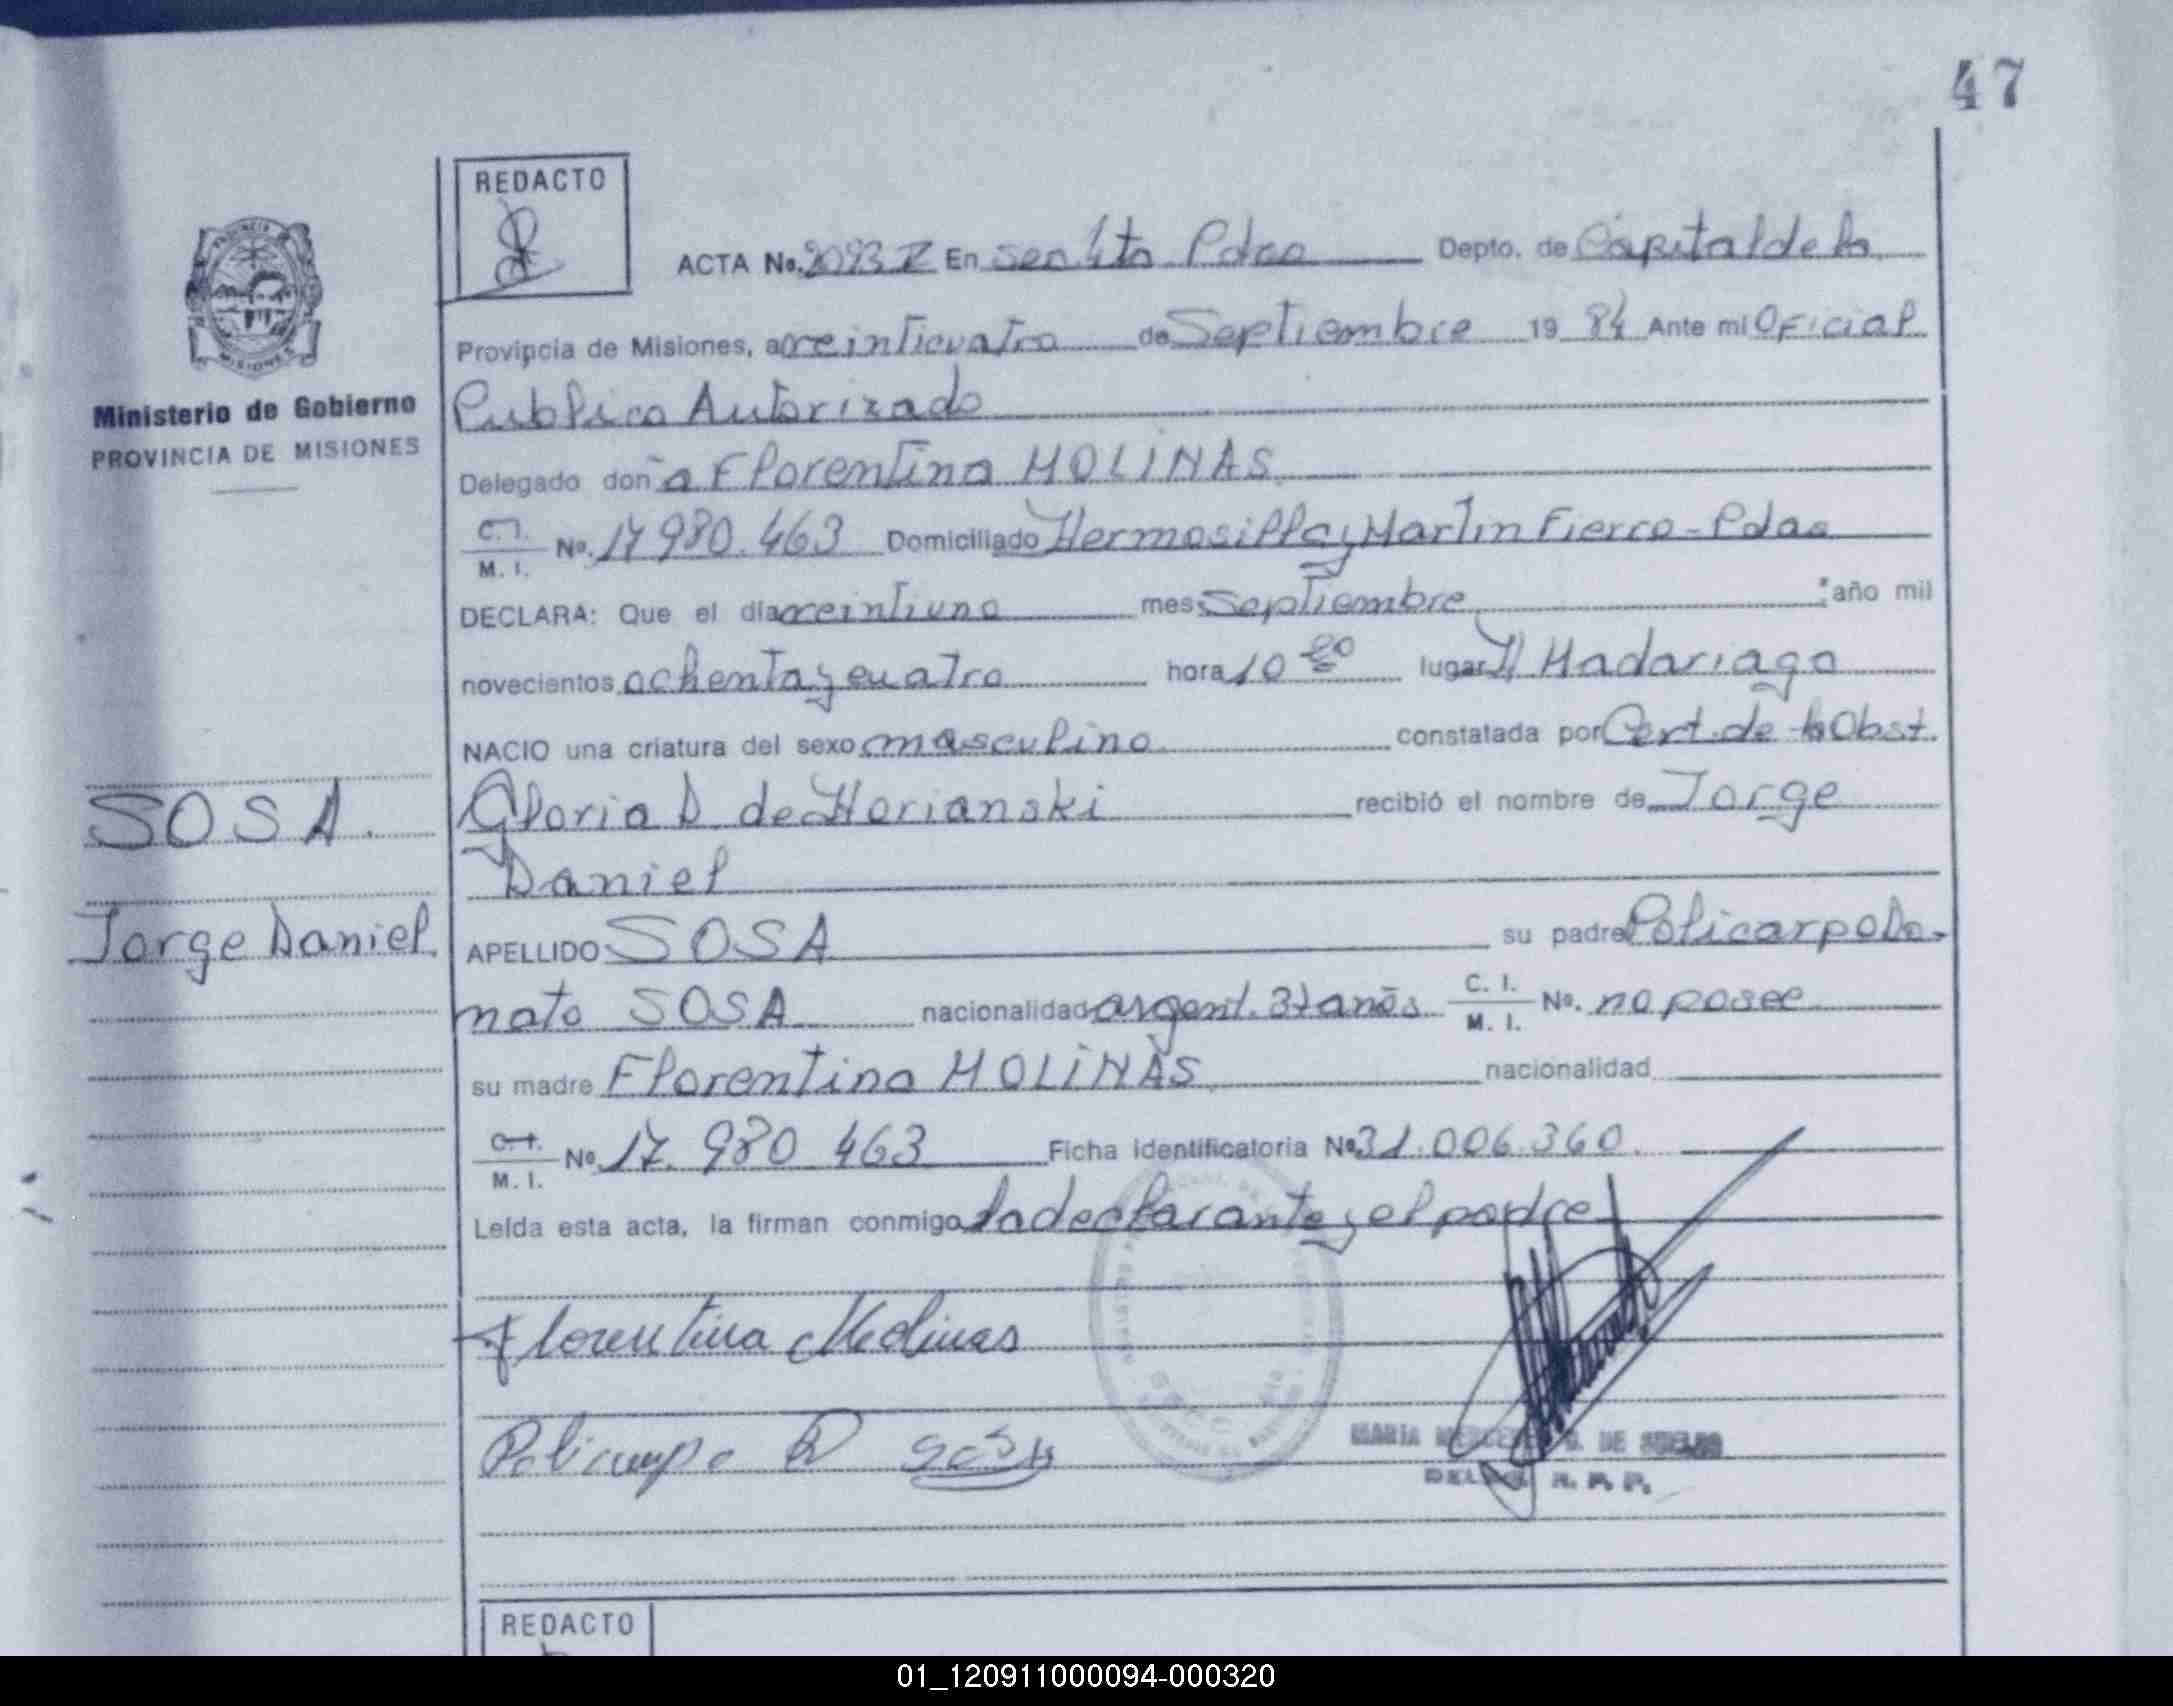 47
REDACTO
ACTA No. 2093 I En sec 4ta Pdas Depto. de Capital de la
Provincia de Misiones, a veinticuatro de Septiembre 19 84 Ante mi Oficial
Publico Autorizado
Delegado doña Florentina MOLINAS
C.I. M. I. No. 17 980.463 Domiciliado Hermosilla y Martin Fierro - Pdas
DECLARA: Que el día veintiuno mes Septiembre año mil
novecientos ochenta y cuatro hora 10 lugar H Madariaga
NACIO una criatura del sexo masculino constatada por Cert. de la Obst.
Gloria D de Horianski recibió el nombre de Jorge
Daniel
APELLIDO SOSA su padre Policarpo Do-
nato SOSA nacionalidad argent. 31 años C. I. M. I. No. no posee
su madre Florentina MOLINAS nacionalidad
C.I. M. I. No 17. 980 463 Ficha identificatoria No 31.006.360
Leída esta acta, la firman conmigo la declarante y el padre
Florentina Molinas
Policarpo D Sosa
MARIA MERCEDES DE
R. P. P.
REDACTO
PROVINCIA DE
MISIONES
Ministerio de Gobierno
PROVINCIA DE MISIONES
SOSA
Jorge Daniel
01_120911000094-000320